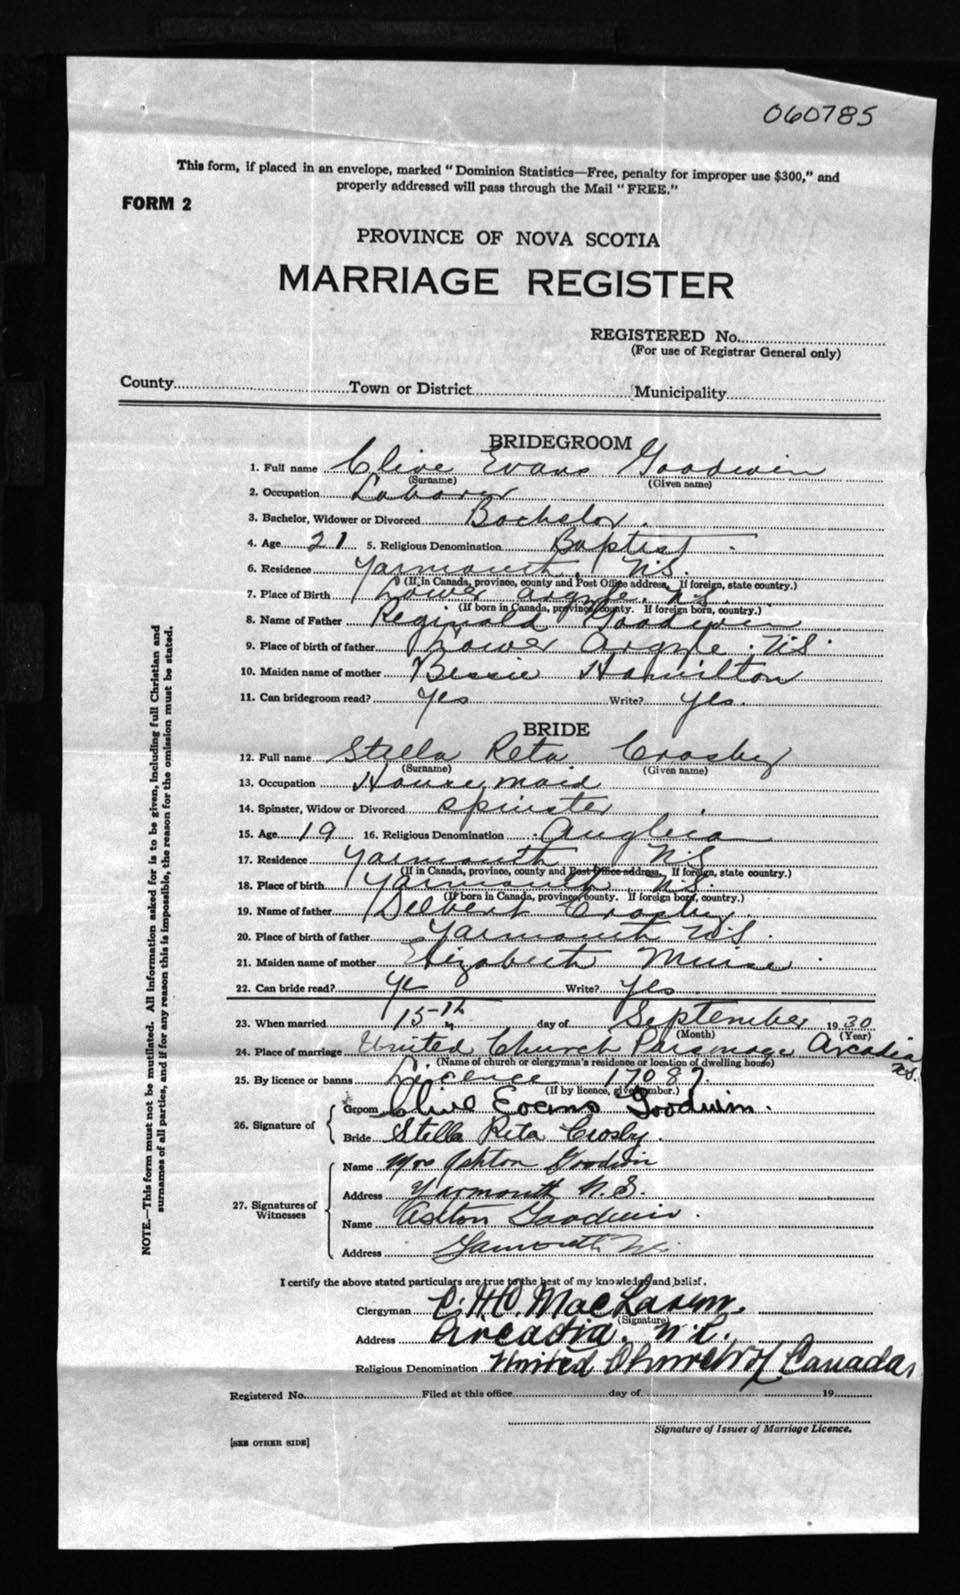 060785
This form, if placed in an envelope, marked "Dominion Statistics—Free, penalty for improper use $300," and
properly addressed will pass through the Mail "FREE."
FORM 2
PROVINCE OF NOVA SCOTIA
MARRIAGE REGISTER
REGISTERED No.
(For use of Registrar General only)
County Town or District Municipality
BRIDEGROOM
1. Full name Clive Evans Goodwin
(Surname) (Given name)
2. Occupation Laborer
3. Bachelor, Widower or Divorced Bachelor.
4. Age 21 5. Religious Denomination Baptist
6. Residence Yarmouth, N.S.
(If in Canada, province, county and Post Office address. If foreign, state country.)
7. Place of Birth Lower Argyle. N.S.
(If born in Canada, province, county. If foreign born, country.)
8. Name of Father Reginald Goodwin
9. Place of birth of father Lower Argyle. N.S.
10. Maiden name of mother Bessie Hamilton
11. Can bridegroom read? Yes Write? yes.
BRIDE
12. Full name Stella Reta Crosby
(Surname) (Given name)
13. Occupation Housemaid
14. Spinster, Widow or Divorced spinster
15. Age 19 16. Religious Denomination
17. Residence Yarmouth N.S
(If in Canada, province, county and Post Office address. If foreign, state country.)
18. Place of birth Yarmouth N.S.
(If born in Canada, province, county. If foreign born, country.)
19. Name of father Delbert Crosby.
20. Place of birth of father Yarmouth N.S.
21. Maiden name of mother Elizabeth Muise
22. Can bride read? Write? yes
23. When married 15th day of September 1930
(Month) (Year)
24. Place of marriage United Church Parsonage Arcadia N.S.
(Name of church or clergyman's residence or location of dwelling house)
25. By licence or banns Licence 17087.
(If by licence, give number.)
26. Signature of
Groom Clive Evans Goodwin.
Bride Stella Rita Crosby.
27. Signatures of Witnesses
Name Mrs Ashton Goodwin
Address Yarmouth N.S.
Name Goodwin.
Address Yarmouth
I certify the above stated particulars are true to the best of my knowledge and belief.
Clergyman MacLaren.
(Signature)
Address Arcadia. N.S.,
Religious Denomination United Church of Canada,
Registered No. Filed at this office day of 19
Signature of Issuer of Marriage Licence.
[SEE OTHER SIDE]
NOTE.—This form must not be mutilated. All information asked for is to be given, including full Christian and
surnames of all parties, and if for any reason this is impossible, the reason for the omission must be stated.